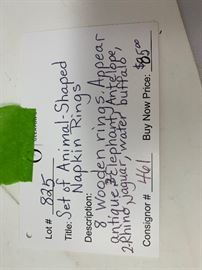 Lot # 825
Title: Set of Animal-Shaped
Napkin Rings
Description:
8 Wooden rings. Appear
antique 3 Elephant, Antelope,
2 Rhino, Jaguar, water buffalo,
Consignor # 461 Buy Now Price: $85.00